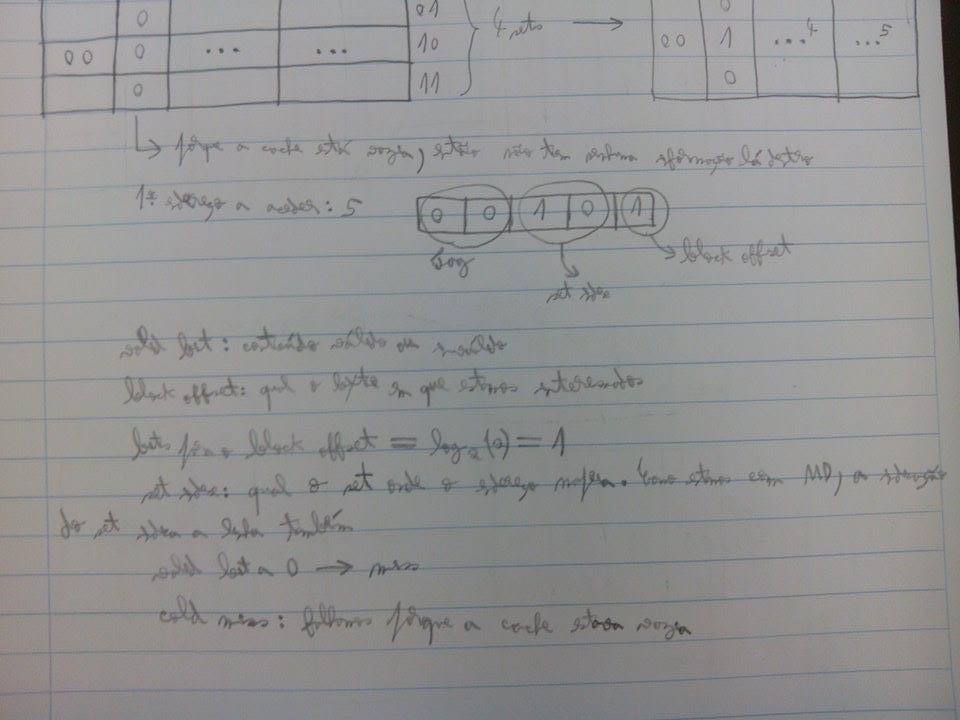 0 01
00 0 ... ... 10 4 sets → 00 1 ...4 ...5
0 11 0
↳ porque a cache está vazia, então não tem nenhuma informação lá dentro
1º endereço a aceder: 5 0 0 1 0 1
tag block offset
set index
valid bit: conteúdo válido ou inválido
block offset: qual o byte em que estamos interessados
bits para o block offset = log2(2) = 1
set index: qual o set onde o endereço mapeia. Como estamos com MD, a
do set indica a linha também
valid bit a 0 → miss
cold miss: falhamos porque a cache estava vazia